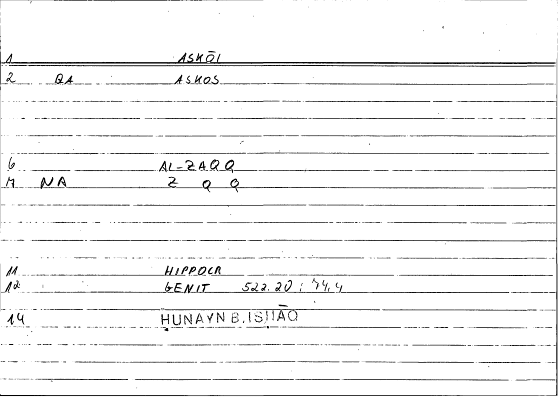 1 ASKŌI
2 QA ASKOS
6 AL-ZAQQ
M NA Z Q Q
11 HIPPOCR
12 GENIT 522.20; 74,4
14 HUNAYN B. ISHĀQ